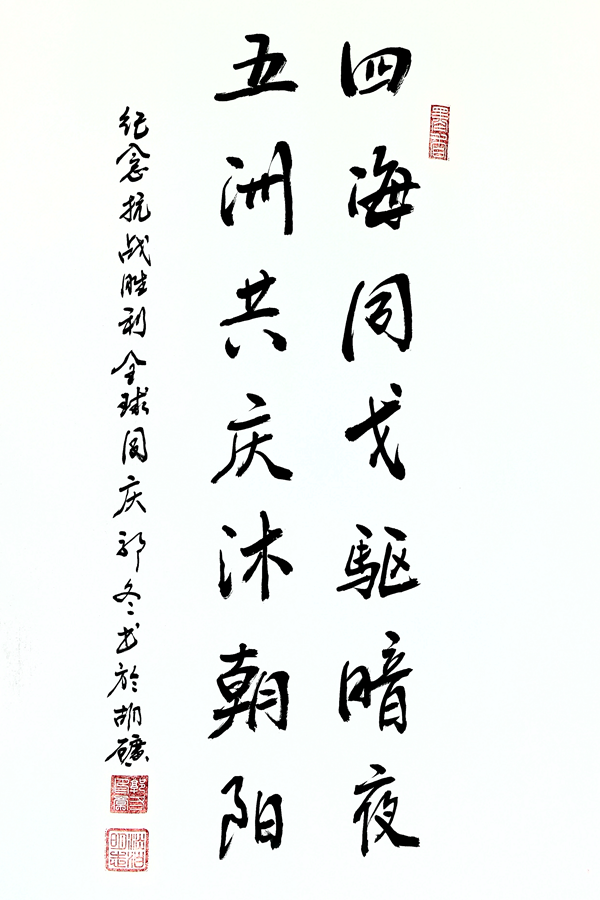 四海同戈驱暗夜
五洲共庆沐朝阳
纪念抗战胜利全球同庆郭冬书於胡礦